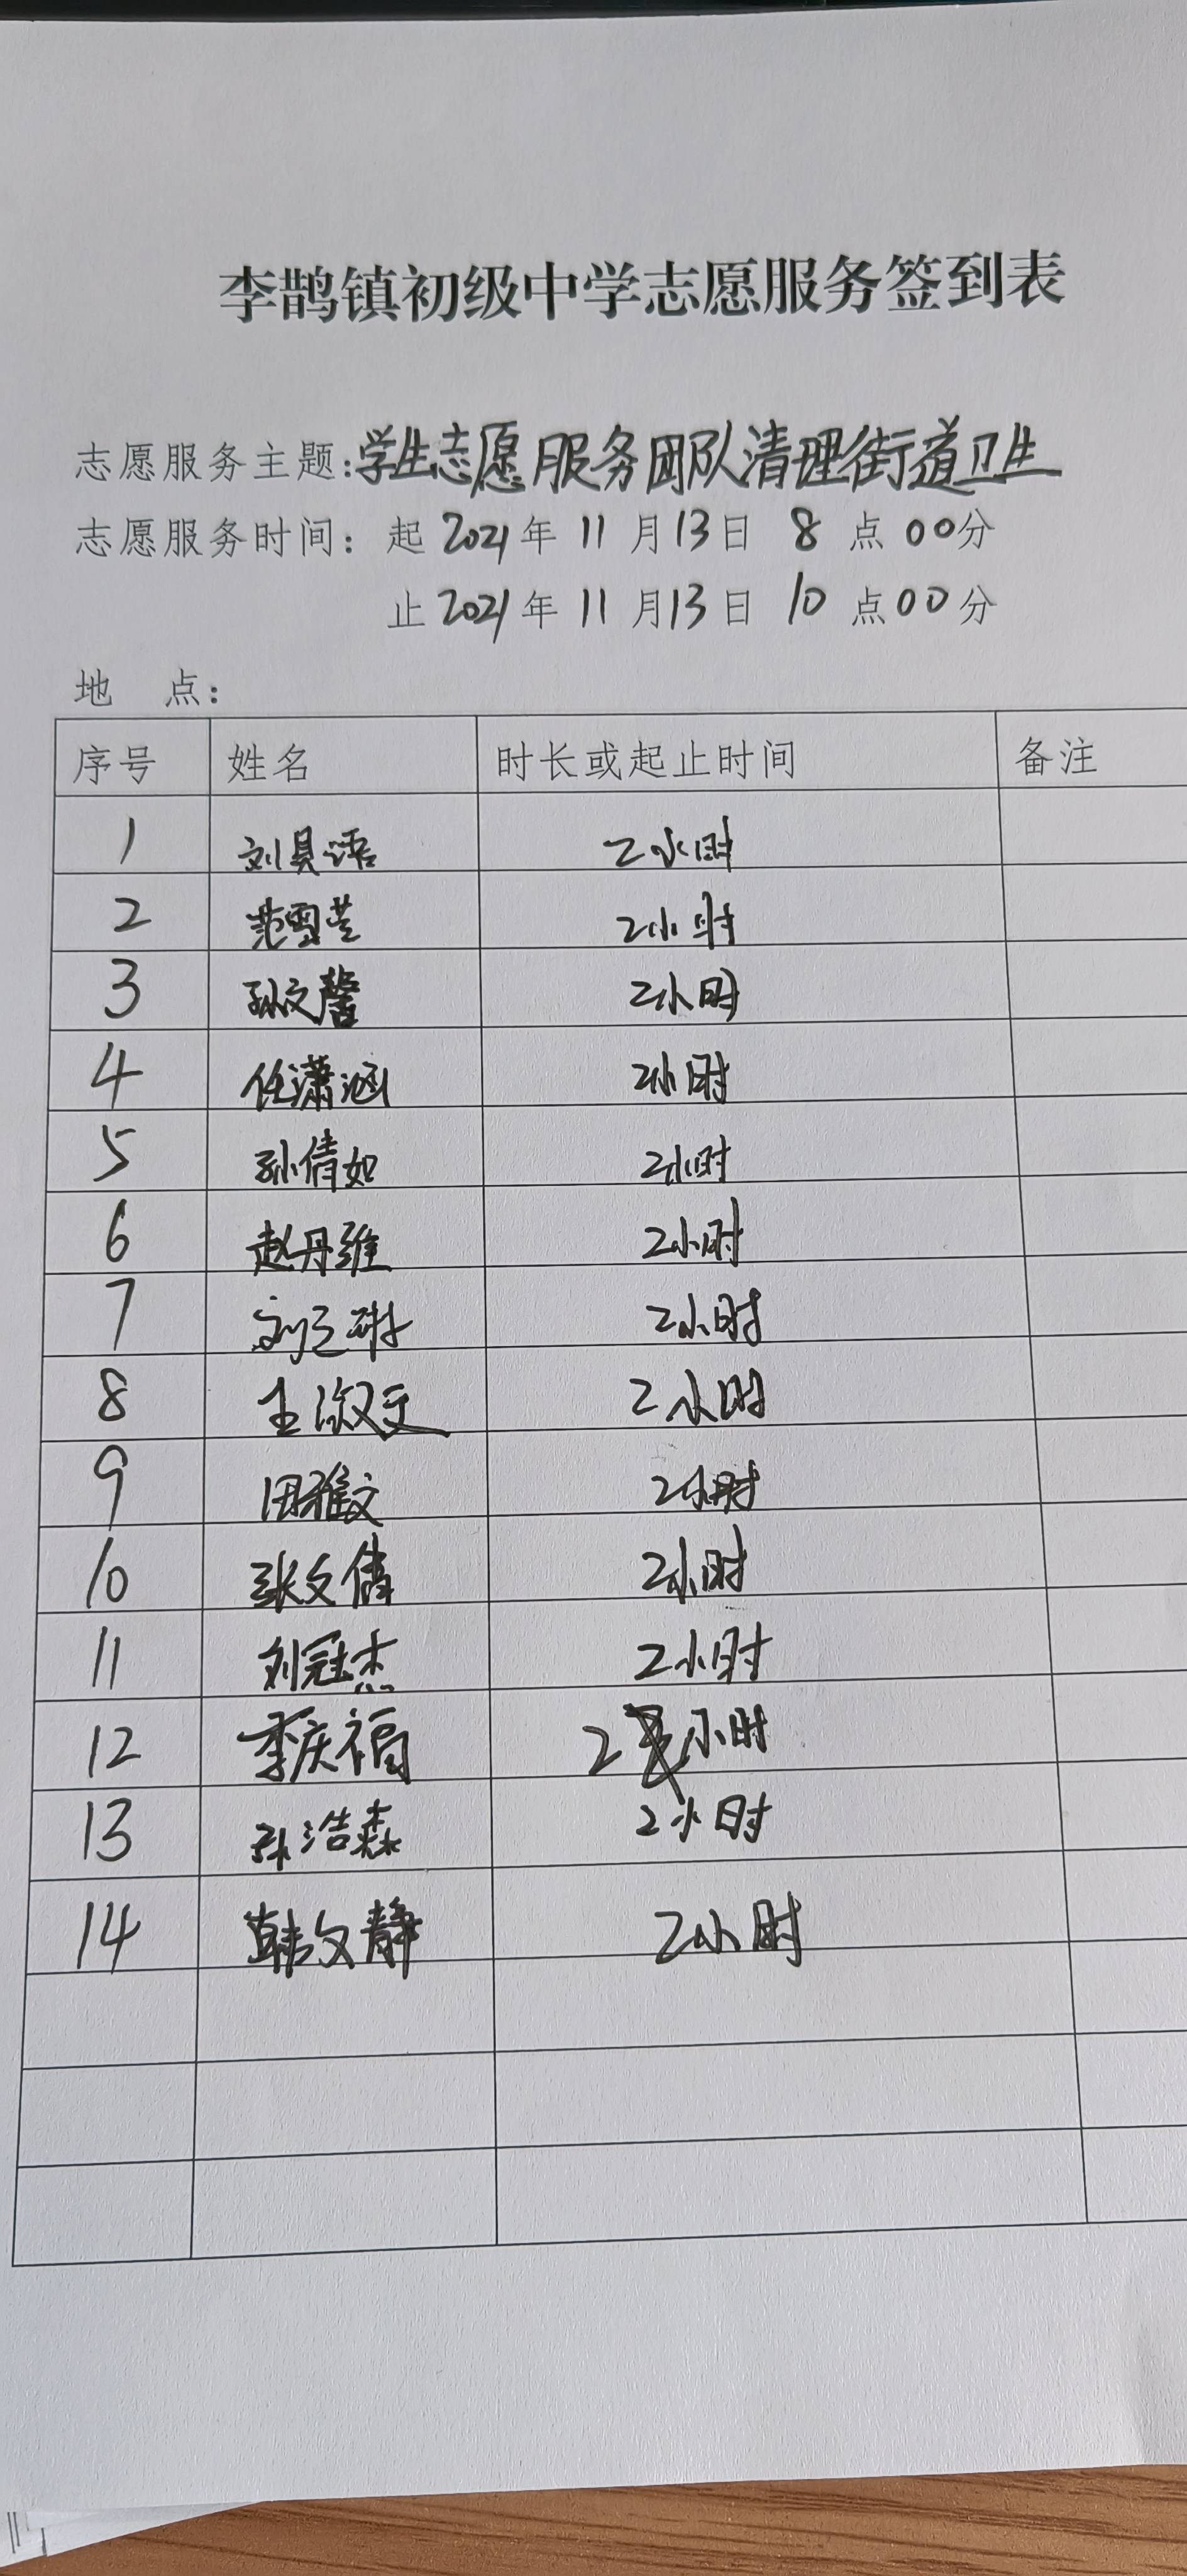 李鹊镇初级中学志愿服务签到表
志愿服务主题:学生志愿服务团队清理街道卫生
志愿服务时间: 起 2021 年 11 月 13 日 8 点 00 分
止 2021 年 11 月 13 日 10 点 00 分
地 点:
序号 姓名 时长或起止时间 备注
1 刘昊语 2小时
2 范雪芝 2小时
3 孙文馨 2小时
4 任潇涵 2小时
5 孙倩如 2小时
6 赵丹维 2小时
7 2小时
8 王淑文 2小时
9 田雅文 2小时
10 张文倩 2小时
11 刘冠杰 2小时
12 李庆福 2小时
13 孙浩森 2小时
14 韩文静 2小时